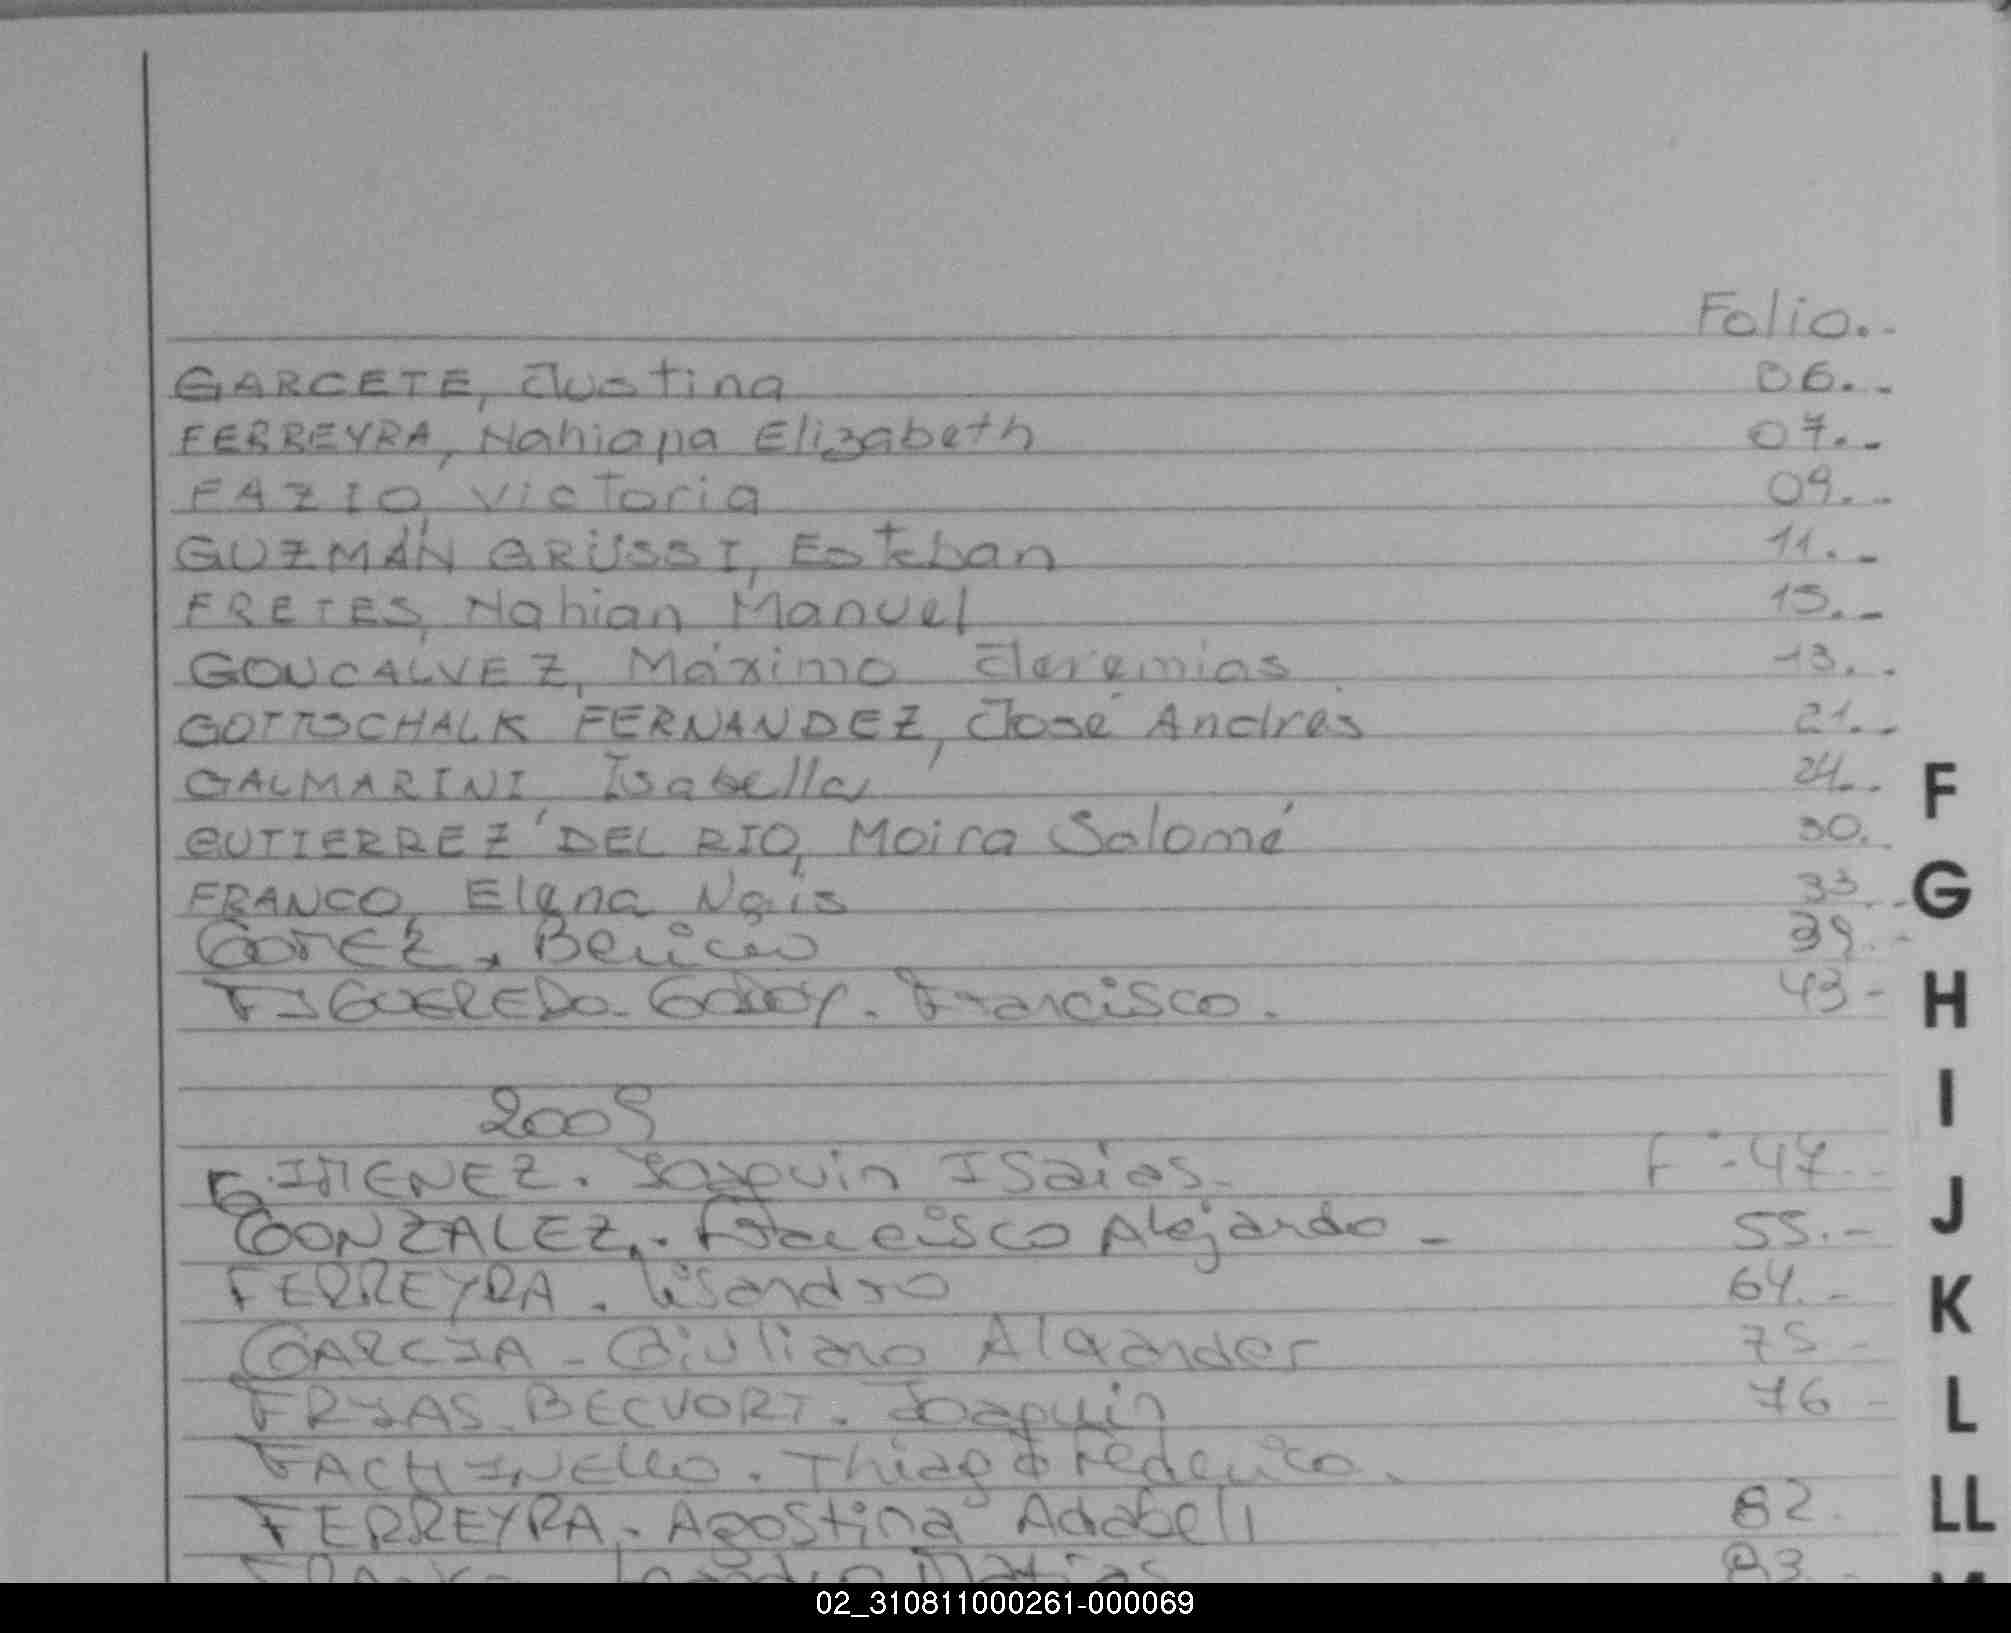 Folio.-
GARCETE, Justina 06.-
FERREYRA, Nahiana Elizabeth 07.-
FAZIO, Victoria 09.-
GUZMÁN GRÜSSI, Esteban 11.-
FRETES, Nahian Manuel 15.-
GONCALVEZ, Máximo Jeremias 13.-
GOTTSCHALK FERNANDEZ, José Andrés 21.-
GALMARINI, Isabella 24.-
GUTIERREZ DEL RIO, Moira Salomé 30.
FRANCO, Elena Nais 33.-
GOMEZ, Benicio 39.-
FIGUEREDO-GODOY. Francisco. 43-
2009
GIMENEZ. Joaquin ISaias- F-47.-
GONZALEZ.- Francisco Alejandro - 55.-
FERREYRA. Lisandro 64.-
GARCIA - Giuliano Alexander 75-
FRIAS-BECVORT. Joaquin 76-
FACHINELLO. Thiago Federico.
FERREYRA. Agostina Adabeli 82.
83.-
F
G
H
I
J
K
L
LL
02_310811000261-000069